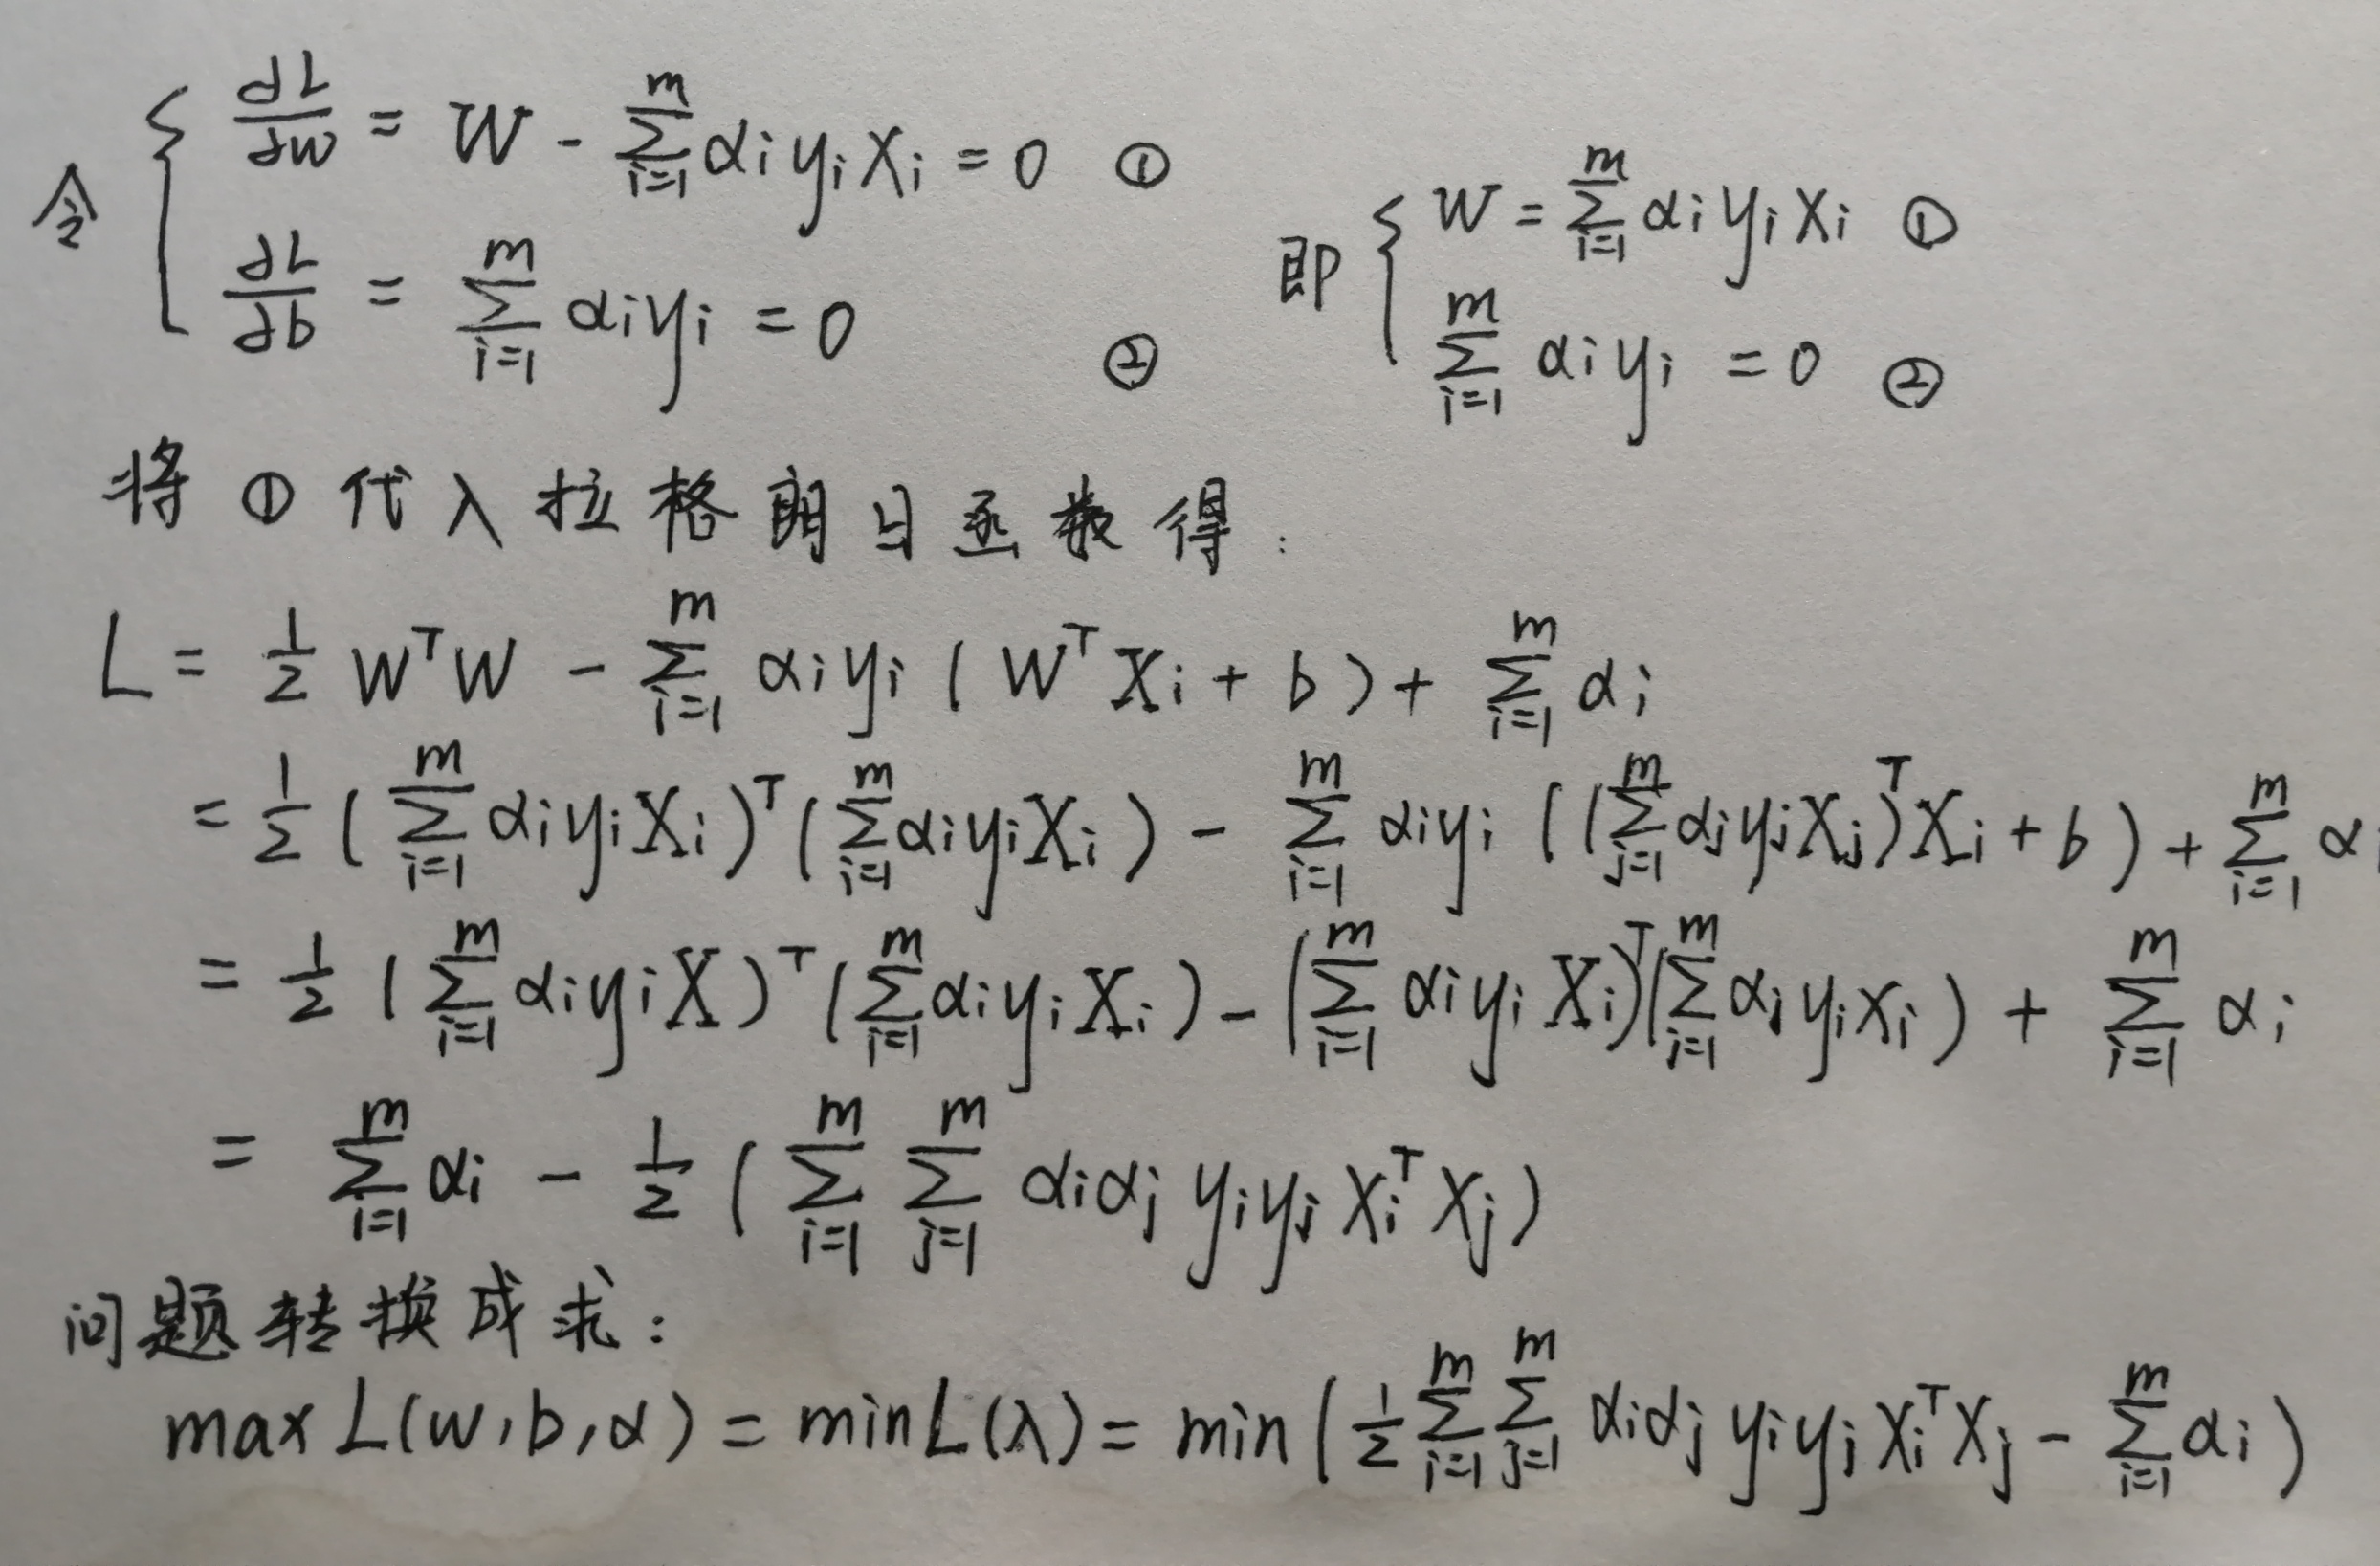 令 { ∂L/∂w = W - ∑_{i=1}^{m} α_i y_i X_i = 0 ①
∂L/∂b = ∑_{i=1}^{m} α_i y_i = 0 ②
即 { W = ∑_{i=1}^{m} α_i y_i X_i ①
∑_{i=1}^{m} α_i y_i = 0 ②
将 ① 代入拉格朗日函数得:
L = 1/2 W^T W - ∑_{i=1}^{m} α_i y_i (W^T X_i + b) + ∑_{i=1}^{m} α_i
= 1/2 (∑_{i=1}^{m} α_i y_i X_i)^T (∑_{i=1}^{m} α_i y_i X_i) - ∑_{i=1}^{m} α_i y_i ((∑_{j=1}^{m} α_j y_j X_j)^T X_i + b) + ∑_{i=1}^{m} α_i
= 1/2 (∑_{i=1}^{m} α_i y_i X)^T (∑_{i=1}^{m} α_i y_i X_i) - (∑_{i=1}^{m} α_i y_i X_i)^T (∑_{i=1}^{m} α_i y_i X_i) + ∑_{i=1}^{m} α_i
= ∑_{i=1}^{m} α_i - 1/2 (∑_{i=1}^{m} ∑_{j=1}^{m} α_i α_j y_i y_j X_i^T X_j)
问题转换成求:
max L(w,b,α) = min L(λ) = min (1/2 ∑_{i=1}^{m} ∑_{j=1}^{m} α_i α_j y_i y_j X_i^T X_j - ∑_{i=1}^{m} α_i)